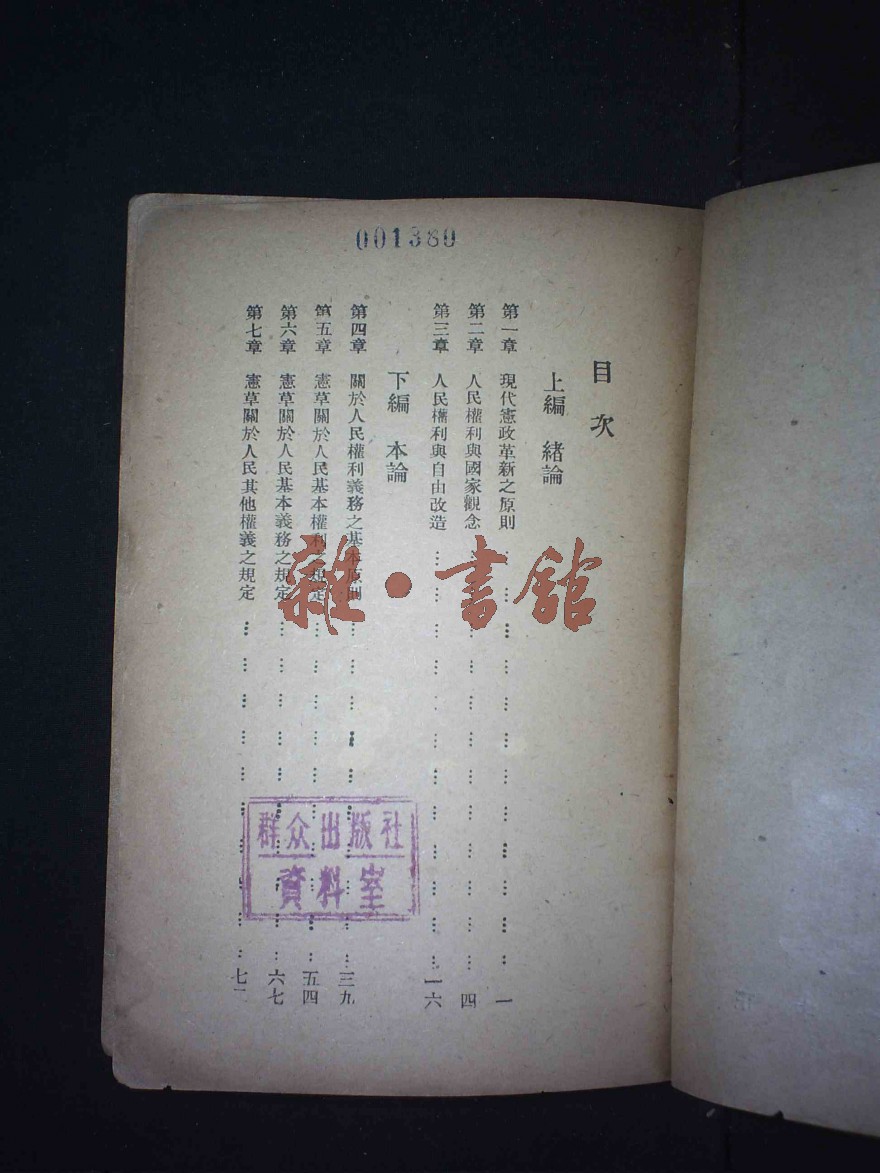 001380
目次
上編 緒論
第一章 現代憲政革新之原則 … … … … … … … … … … … 一
第二章 人民權利與國家觀念 … … … … … … … … … … … 四
第三章 人民權利與自由改造 … … … … … … … … … … … 一六
下編 本論
第四章 關於人民權利義務之基本原則 … … … … … … … … … 三九
第五章 憲草關於人民基本權利之規定 … … … … … … … … … 五四
第六章 憲草關於人民基本義務之規定 … … … … … … … … … 六七
第七章 憲草關於人民其他權義之規定 … … … … … … … … … 七
群众出版社
資料室
雜·書館